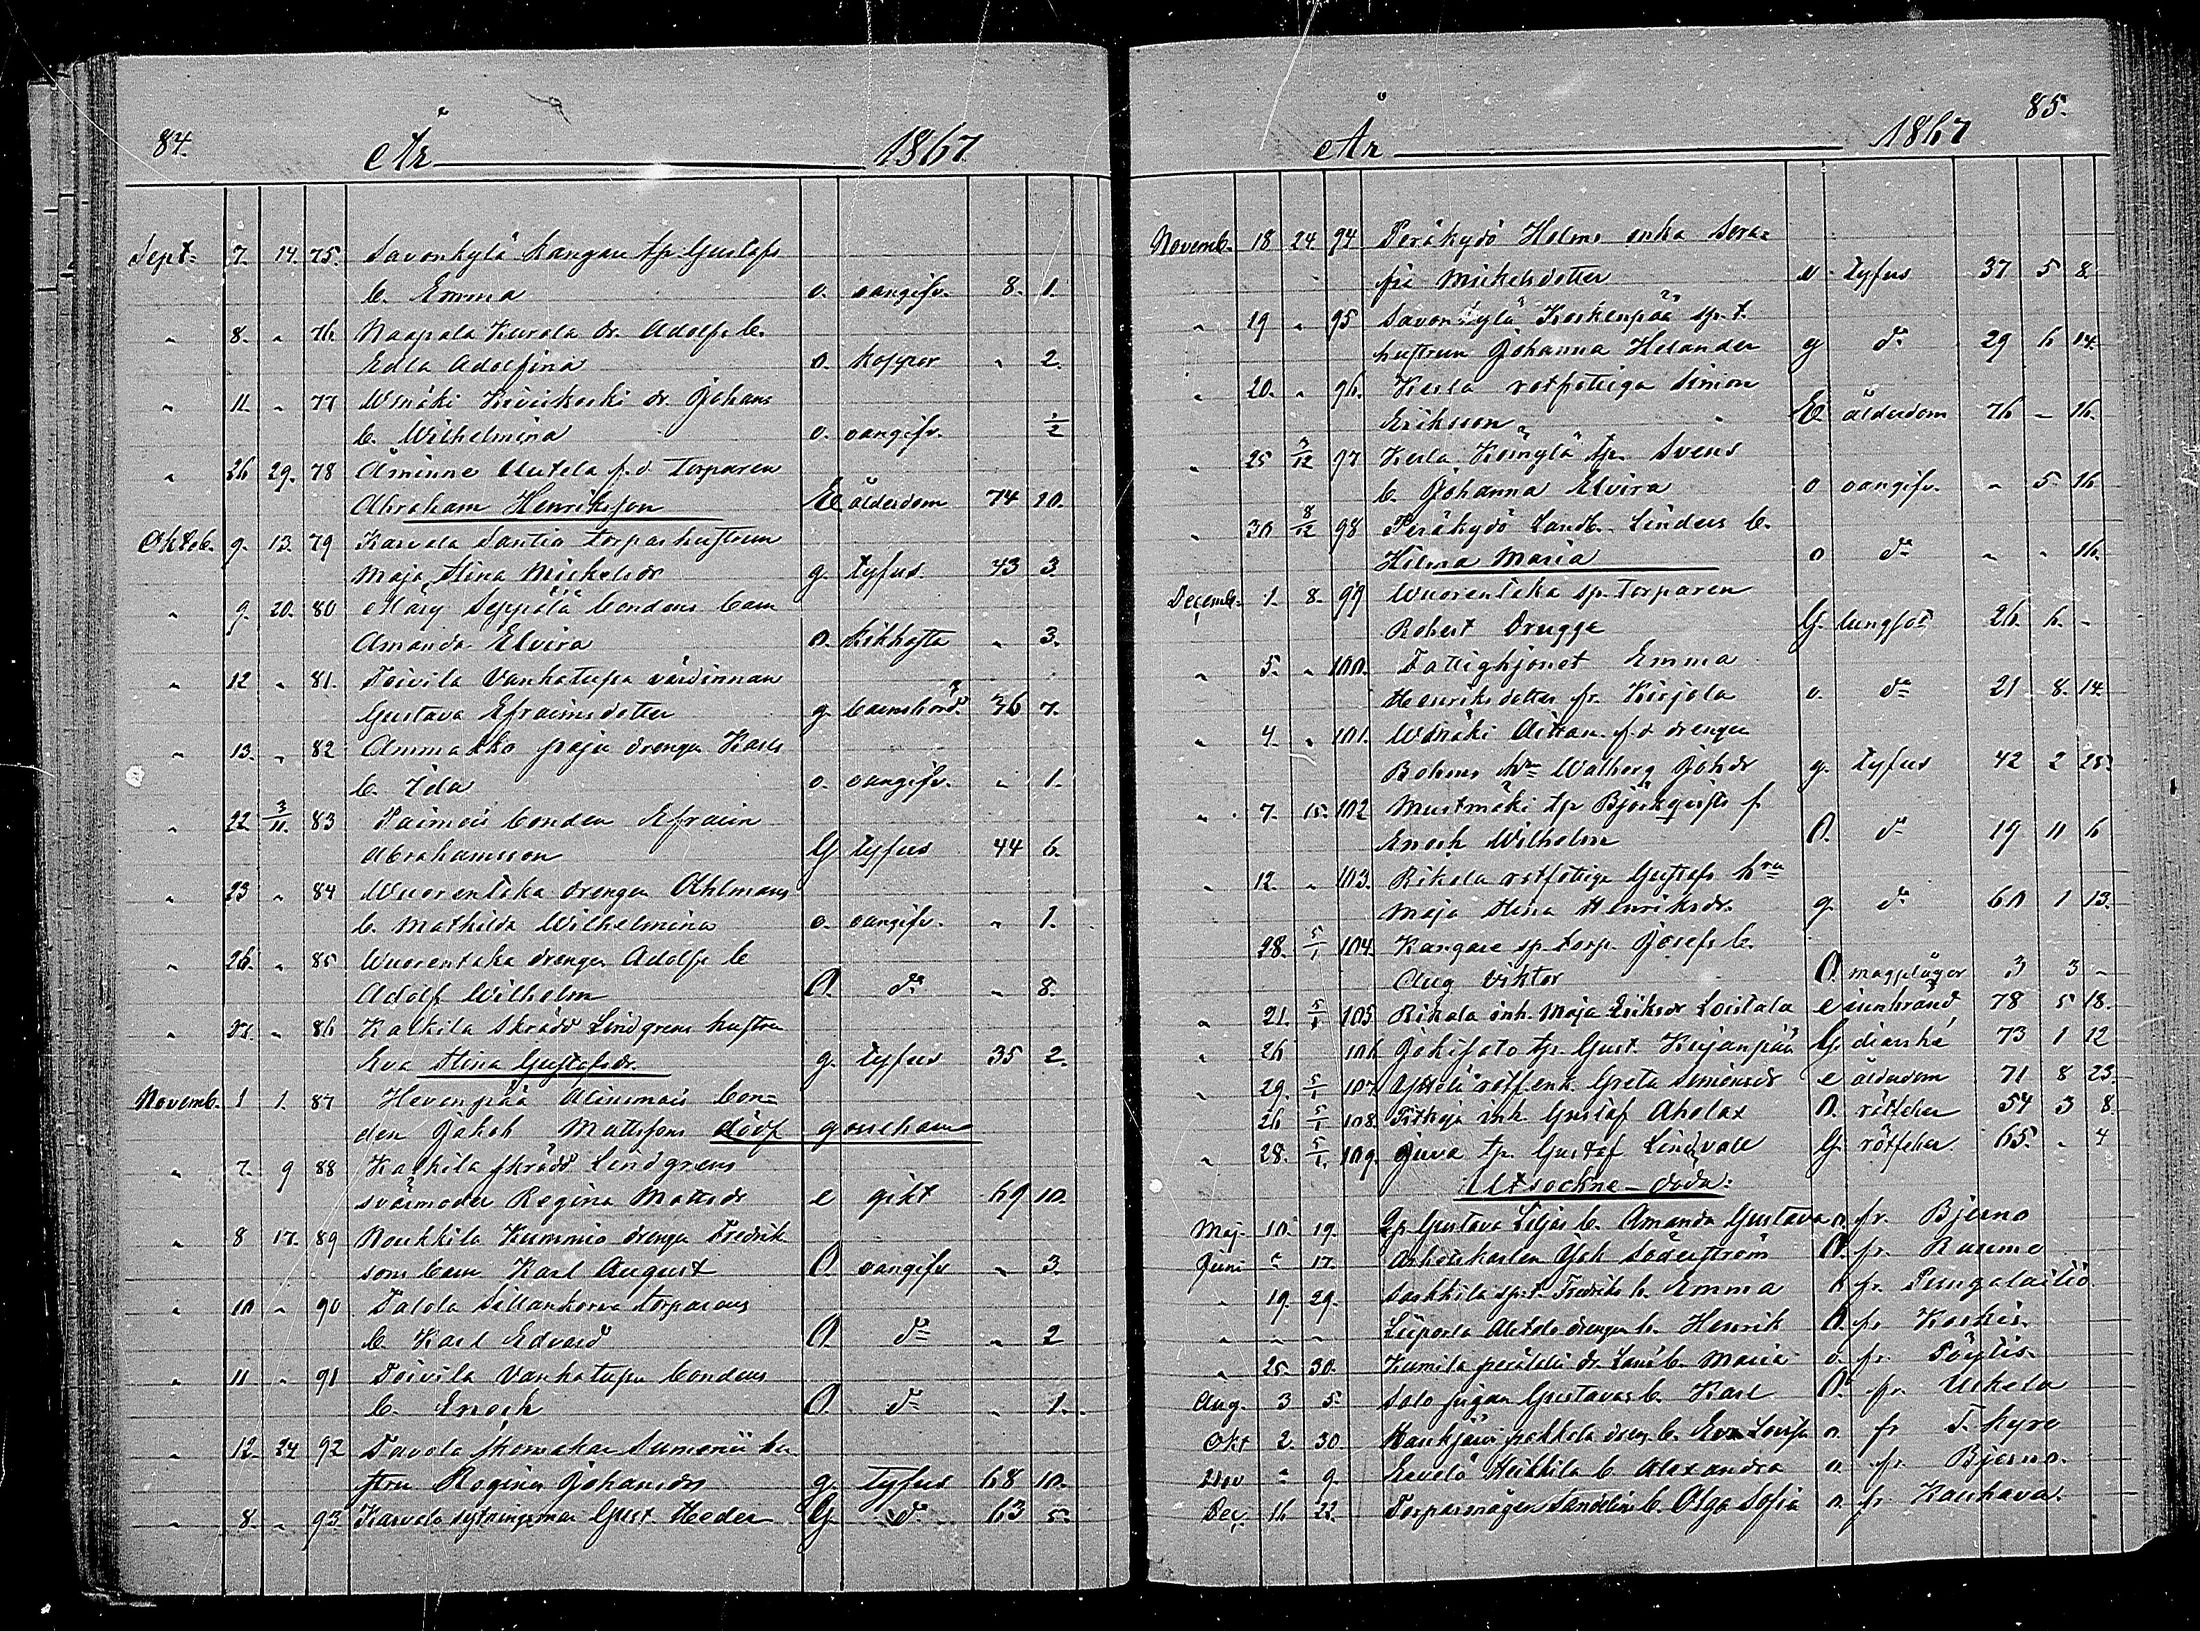 84. År 1867
Sept. 7. 14. 75. Savonkylä Kangare tp. Gustafs
b. Emma o. oangifv. 8. 1.
„ 8. „ 76. Naapala Kurola dr. Adolfs b.
Edla Adolfina o. koppor „ 2.
„ 11. „ 77 Kivikoski dr. Johans
b. Wilhelmina o. oangifv. ½
„ 26 29. 78 Åminne Uutela f.d. torparen
Abraham Henriksson Ee ålderdom 74 20.
Oktob. 9. 13. 79 Karvela Santio torpar hustrun
Maja Stina Mickelsdr g. tyfus. 43 3.
„ 9. 20. 80 Märy Seppälä bondens barn
Amanda Elvira o. kikhosta „ 3.
„ 12 „ 81. Toivila Vanhatupa värdinnan
Gustava Efraimsdotter g. barnsbörd. 36 7.
„ 13. „ 82 Ammakko paja drengen Karls
b. Ida o. oangifv. „ 1.
„ 22 3/11. 83 Paimoi bonden Efraim
Abrahamsson G tyfus 44 6.
„ 23 „ 84 Wuorentaka drengen Ahlmans
b. Mathilda Wilhelmina o. oangifv. „ 1.
„ 26. „ 85 Wuorentaka drengen Adolfs b
Adolf Wilhelm O. do „ 8.
„ 27. „ 86 Kaikila skrädd Lindgrens hustru
Eva Stina Gustafsdr. g. tyfus 35 2.
Novemb. 1 1. 87 Hevenpää Alinenmais bon=
den Jakob Mattssons dödf gossebarn
„ 7. 9 88 Kaikila skrädd Lindgrens
svärmoder Regina Mattsdr e gikt 69 10.
„ 8 17. 89 Noukkila Kummio drengen Fredrik
sons barn Karl August O. oangifv „ 3.
„ 10 „ 90 Talola Sillankorva torparens
b. Karl Edvard O. do „ 2
„ 11 „ 91 Toivila Vanhatupa bondens
b. Enoch O. do „ 1.
„ 12. 24 92 Tavola skomakar Sumenii hu
stru Regina Johansdr g. tyfus 68 10.
„ 8. „ 93. Karvela sytningsman Gust. Heder G. do 63 5.
85.
År 1867
Novemb. 18 24 94 Peräkylä Holms enka Sera=
fia Mickelsdotter e tyfus 37 5 8.
„ 19 „ 95 Savonkylä Koskenpää sp. t.
hustrun Johanna Helander g do 29 6 14.
„ 20. „ 96. Kesla rotfattiga Simon
Eriksson Ee ålderdom 76 – 16.
„ 25 3/12 97 Kesla Kömylä tp. Svens
b. Johanna Elvira o oangifv. „ 5 16
„ 30 8/12 98 Peräkylä Landb. Linders b.
Hilma Maria o do „ „ 16.
Decemb. 1. 8. 99 Wuorentaka sp. torparen
Robert Drugge G. lungsot 26. 6. –
„ 5. „ 100. Fattighjonet Emma
Henriksdotter fr. Kirjola o. do 21 8. 14
„ 4. „ 101. Aittan. f.d drengen
Bohms hru Walborg Johdr g. tyfus 42 2 25.
„ 7. 15. 102 Mustmäki tp Björkqvists s
Enoch Wilhelm O. do 19 11 6
„ 12. „ 103. Rikala rotfattiga Gustafs hru
Maja Stina Henriksdr. g. do 60 1 13.
28. 5/1 104. Kangare sp. torp. Josefs b.
Aug Viktor O. magplågor 3 3 –
„ 21. 5/1 105 Rikala inh. Maja Eriksdr Loistala e inbränd 78 5 18.
„ 26 106 Jokisato tp. Gust. Kujanpää G. diarrhé 73 1 12
„ 29. 5/1 107. rotf. enk. Greta Simonsdr e ålderdom 71 8 23.
„ 26 5/1 108. inh. Gustaf Ahola O. rötfeber 54 3 8.
„ 28. 5/1. 109. Juva tp. Gustaf Lindvall G. rötfeber 65. „ 4
Utsockne – döda:
Maj. 10. 19. Gp. Gustava Liljas b. Amanda Gustava o. fr. Bjerno
Juni „ 17. Arbetskarlen Joh Söderström O. fr. Raumo
„ 19. 29. sp. t. Fredriks b. Emma o fr. Pungalaitio
„ „ „ drengen b. Henrik O. fr. Koskis.
„ 25. 30. Kumila perälä dr. b. Maria o. fr. Pöytis.
Aug. 3 5. Salo pigan Gustavas b. Karl O. fr. Uskela
Okt 2. 30. pakkala dreng b. Eva Lovisa o. fr T. kyro
Nov „ 9. Heikkila b. Alexandra o. fr. Bjerno.
Dec. 16 22. Torparmågen Sandelins b. Olga Sofia o. fr Kauhava.